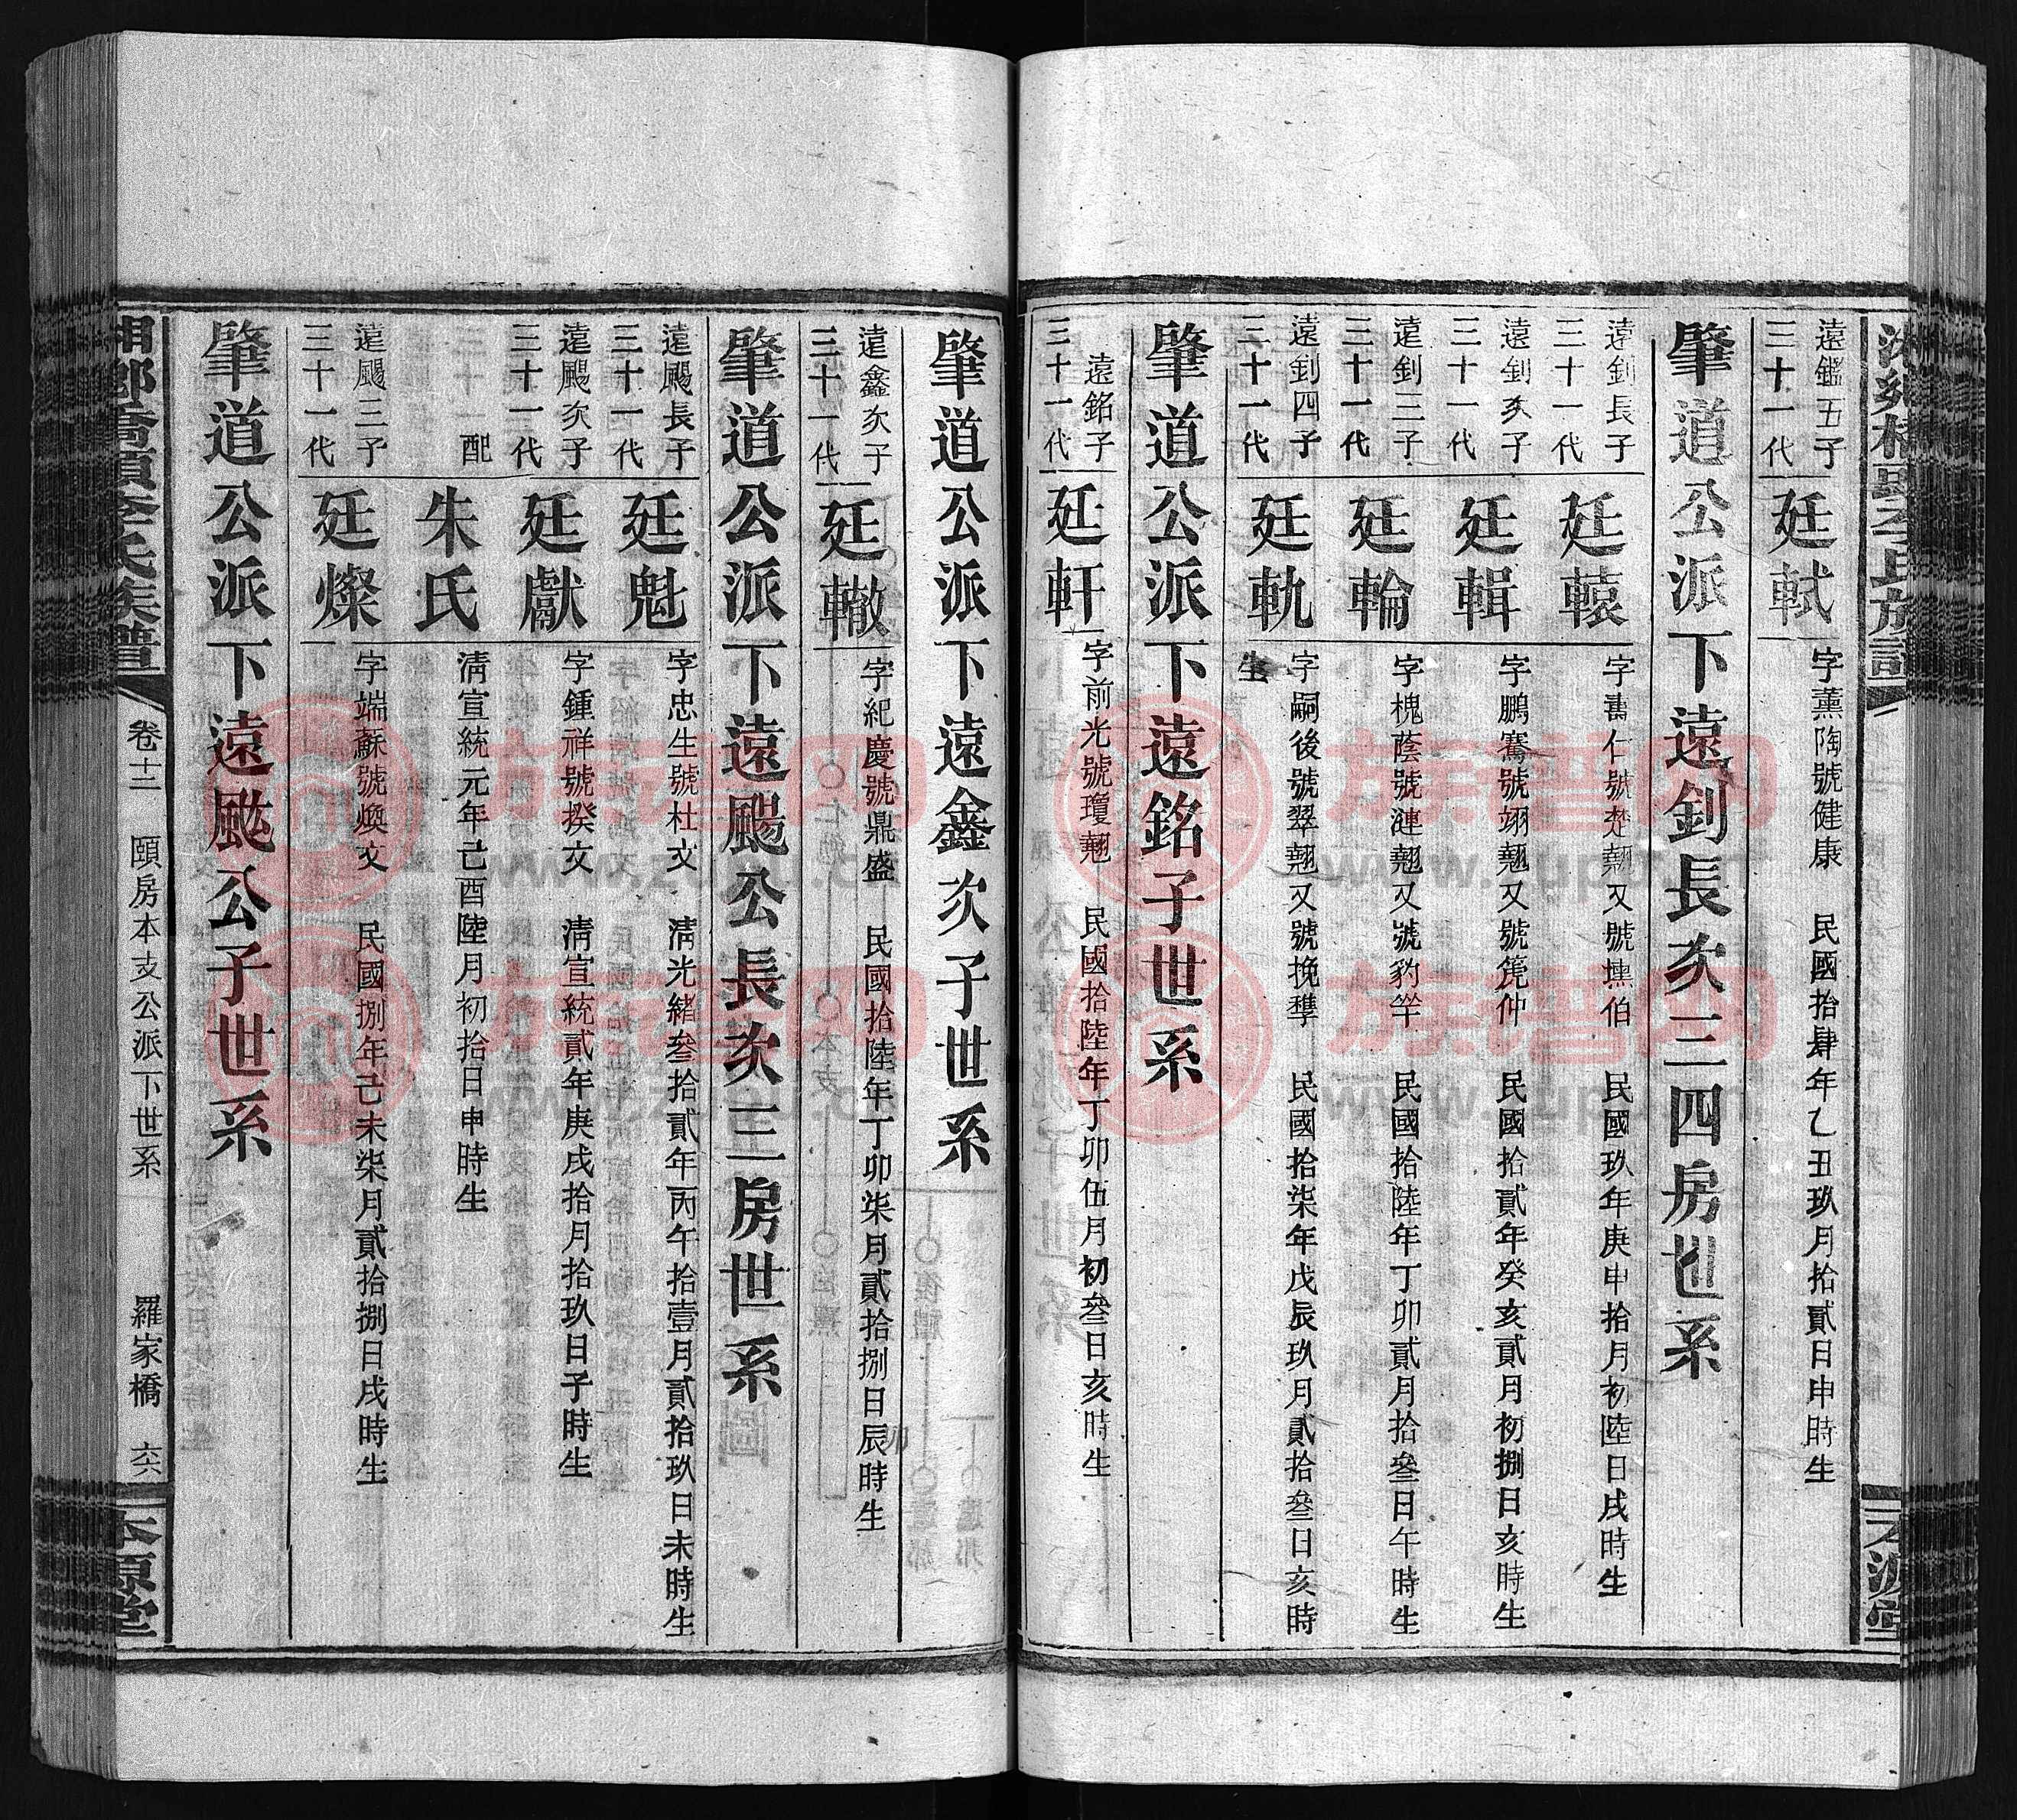 遠鑑五子
三十一代
廷軾
字薰陶號健康 民國拾肆年乙丑玖月拾貳日申時生
肇道公派下遠釗長次三四房世系
遠釗長子
三十一代
廷轅
字壽仁號楚翹又號壎伯 民國玖年庚申拾月初陸日戌時生
遠釗次子
三十一代
廷輯
字鵬騫號翊翹又號篪仲 民國拾貳年癸亥貳月初捌日亥時生
遠釗三子
三十一代
廷輪
字槐蔭號漣翹又號豹竿 民國拾陸年丁卯貳月拾叄日午時生
遠釗四子
三十一代
廷軌
字嗣後號翠翹又號挽犨 民國拾柒年戊辰玖月貳拾叄日亥時
生
肇道公派下遠銘子世系
遠銘子
三十一代
廷軒
字前光號瓊翹 民國拾陸年丁卯伍月初叄日亥時生
肇道公派下遠鑫次子世系
遠鑫次子
三十一代
廷轍
字紀慶號鼎盛 民國拾陸年丁卯柒月貳拾捌日辰時生
卯
肇道公派下遠颺公長次三房世系
遠颺長子
三十一代
廷魁
字忠生號杜文 清光緒叄拾貳年丙午拾壹月貳拾玖日未時生
遠颺次子
三十一代
廷獻
字鍾祥號揆文 清宣統貳年庚戌拾月拾玖日子時生
配
朱氏
清宣統元年己酉陸月初拾日申時生
遠颺三子
三十一代
廷燦
字端蘇號煥文 民國捌年己未柒月貳拾捌日戌時生
肇道公派下遠颷公子世系
卷十二 頤房本支公派下世系 羅家橋 六六
本源堂
族譜网